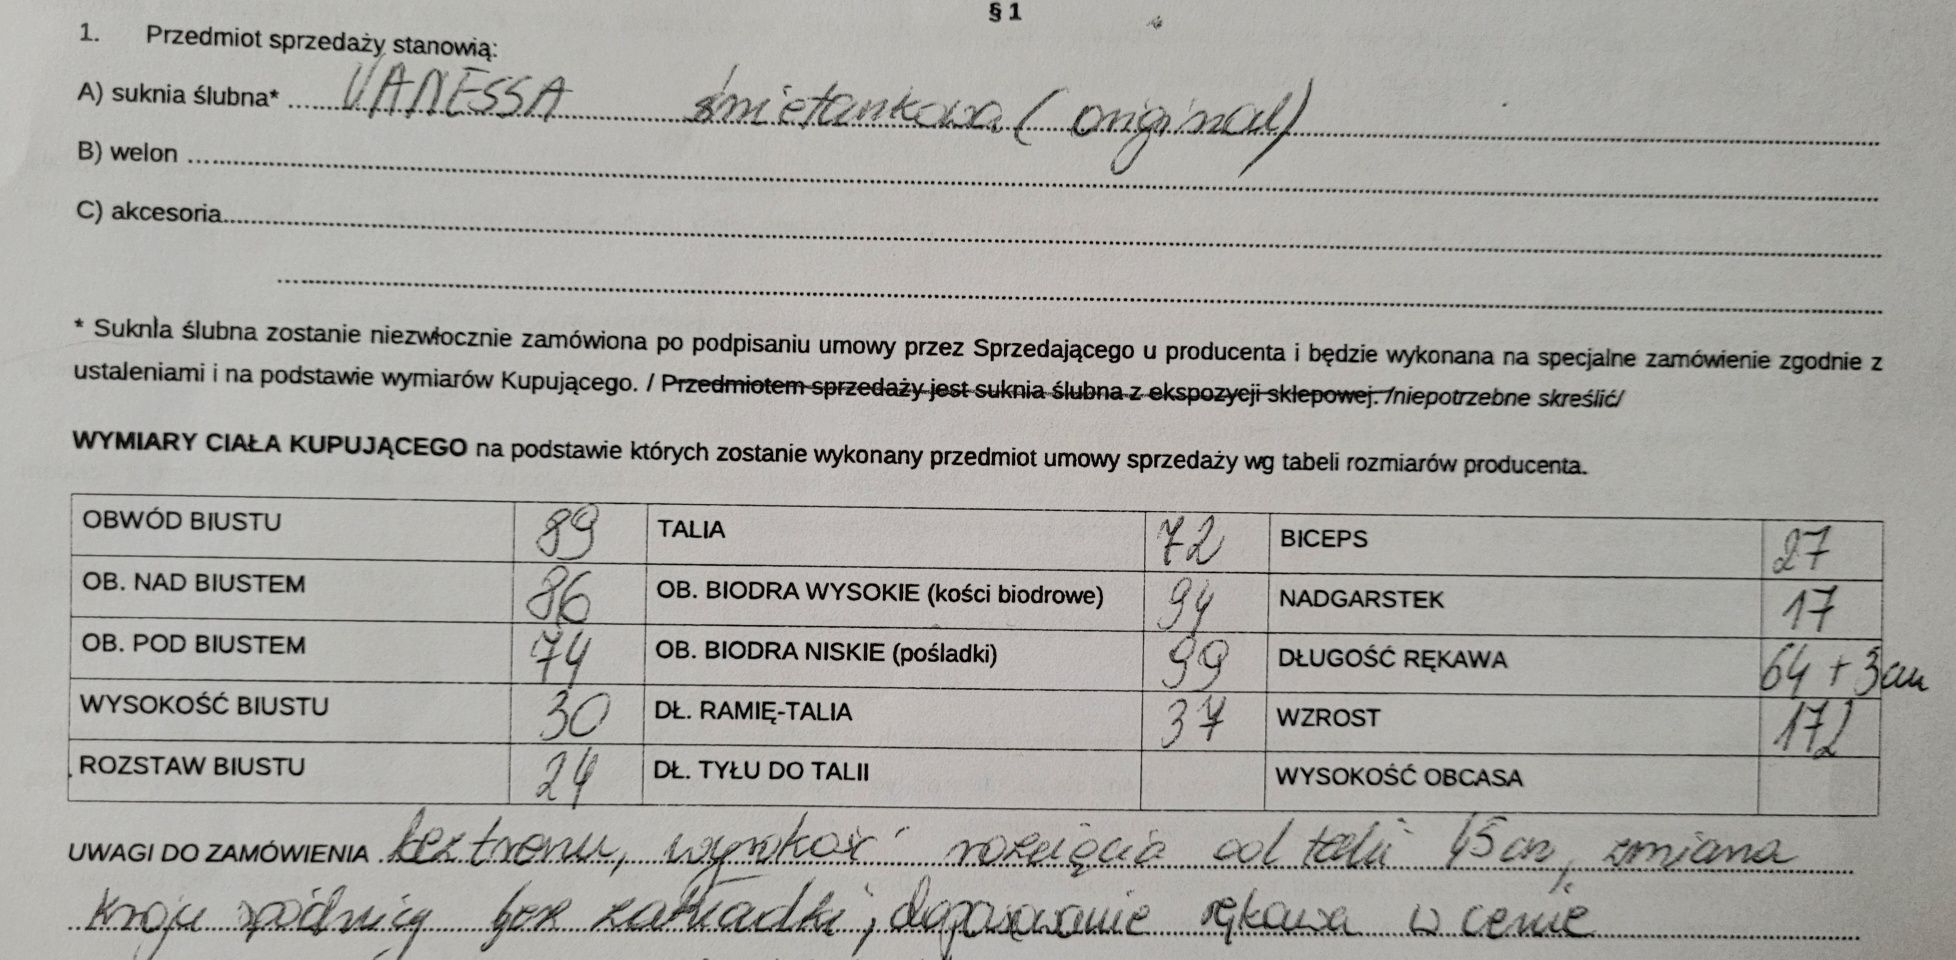 § 1
1. Przedmiot sprzedaży stanowią:
A) suknia ślubna* VANESSA śmietankowa (original)
B) welon
C) akcesoria
* Suknia ślubna zostanie niezwłocznie zamówiona po podpisaniu umowy przez Sprzedającego u producenta i będzie wykonana na specjalne zamówienie zgodnie z
ustaleniami i na podstawie wymiarów Kupującego. / Przedmiotem sprzedaży jest suknia ślubna z ekspozycji sklepowej. /niepotrzebne skreślić/
WYMIARY CIAŁA KUPUJĄCEGO na podstawie których zostanie wykonany przedmiot umowy sprzedaży wg tabeli rozmiarów producenta.
OBWÓD BIUSTU 89 TALIA 72 BICEPS 27
OB. NAD BIUSTEM 86 OB. BIODRA WYSOKIE (kości biodrowe) 94 NADGARSTEK 17
OB. POD BIUSTEM 74 OB. BIODRA NISKIE (pośladki) 99 DŁUGOŚĆ RĘKAWA 64 + 3cm
WYSOKOŚĆ BIUSTU 30 DŁ. RAMIĘ-TALIA 37 WZROST 172
ROZSTAW BIUSTU 24 DŁ. TYŁU DO TALII WYSOKOŚĆ OBCASA
UWAGI DO ZAMÓWIENIA bez trenu, wysokość rozcięcia od talii 45 cm, zmiana
kroju spódnicy bez zakładki, dopasowanie rękawa w cenie